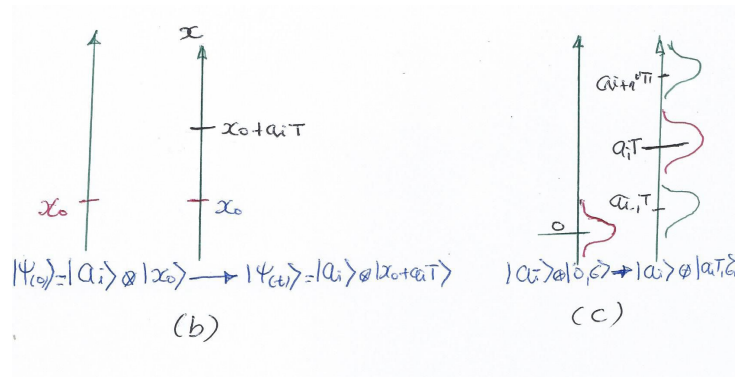 x
x₀+aᵢT
x₀
x₀
|Ψ(0)⟩=|aᵢ⟩⊗|x₀⟩⟶|Ψ(t)⟩=|aᵢ⟩⊗|x₀+aᵢT⟩
(b)
aᵢ₊₁T
aᵢT
aᵢ₋₁T
0
|aᵢ⟩⊗|0,⟶|aᵢ⟩⊗|aᵢT,
(c)